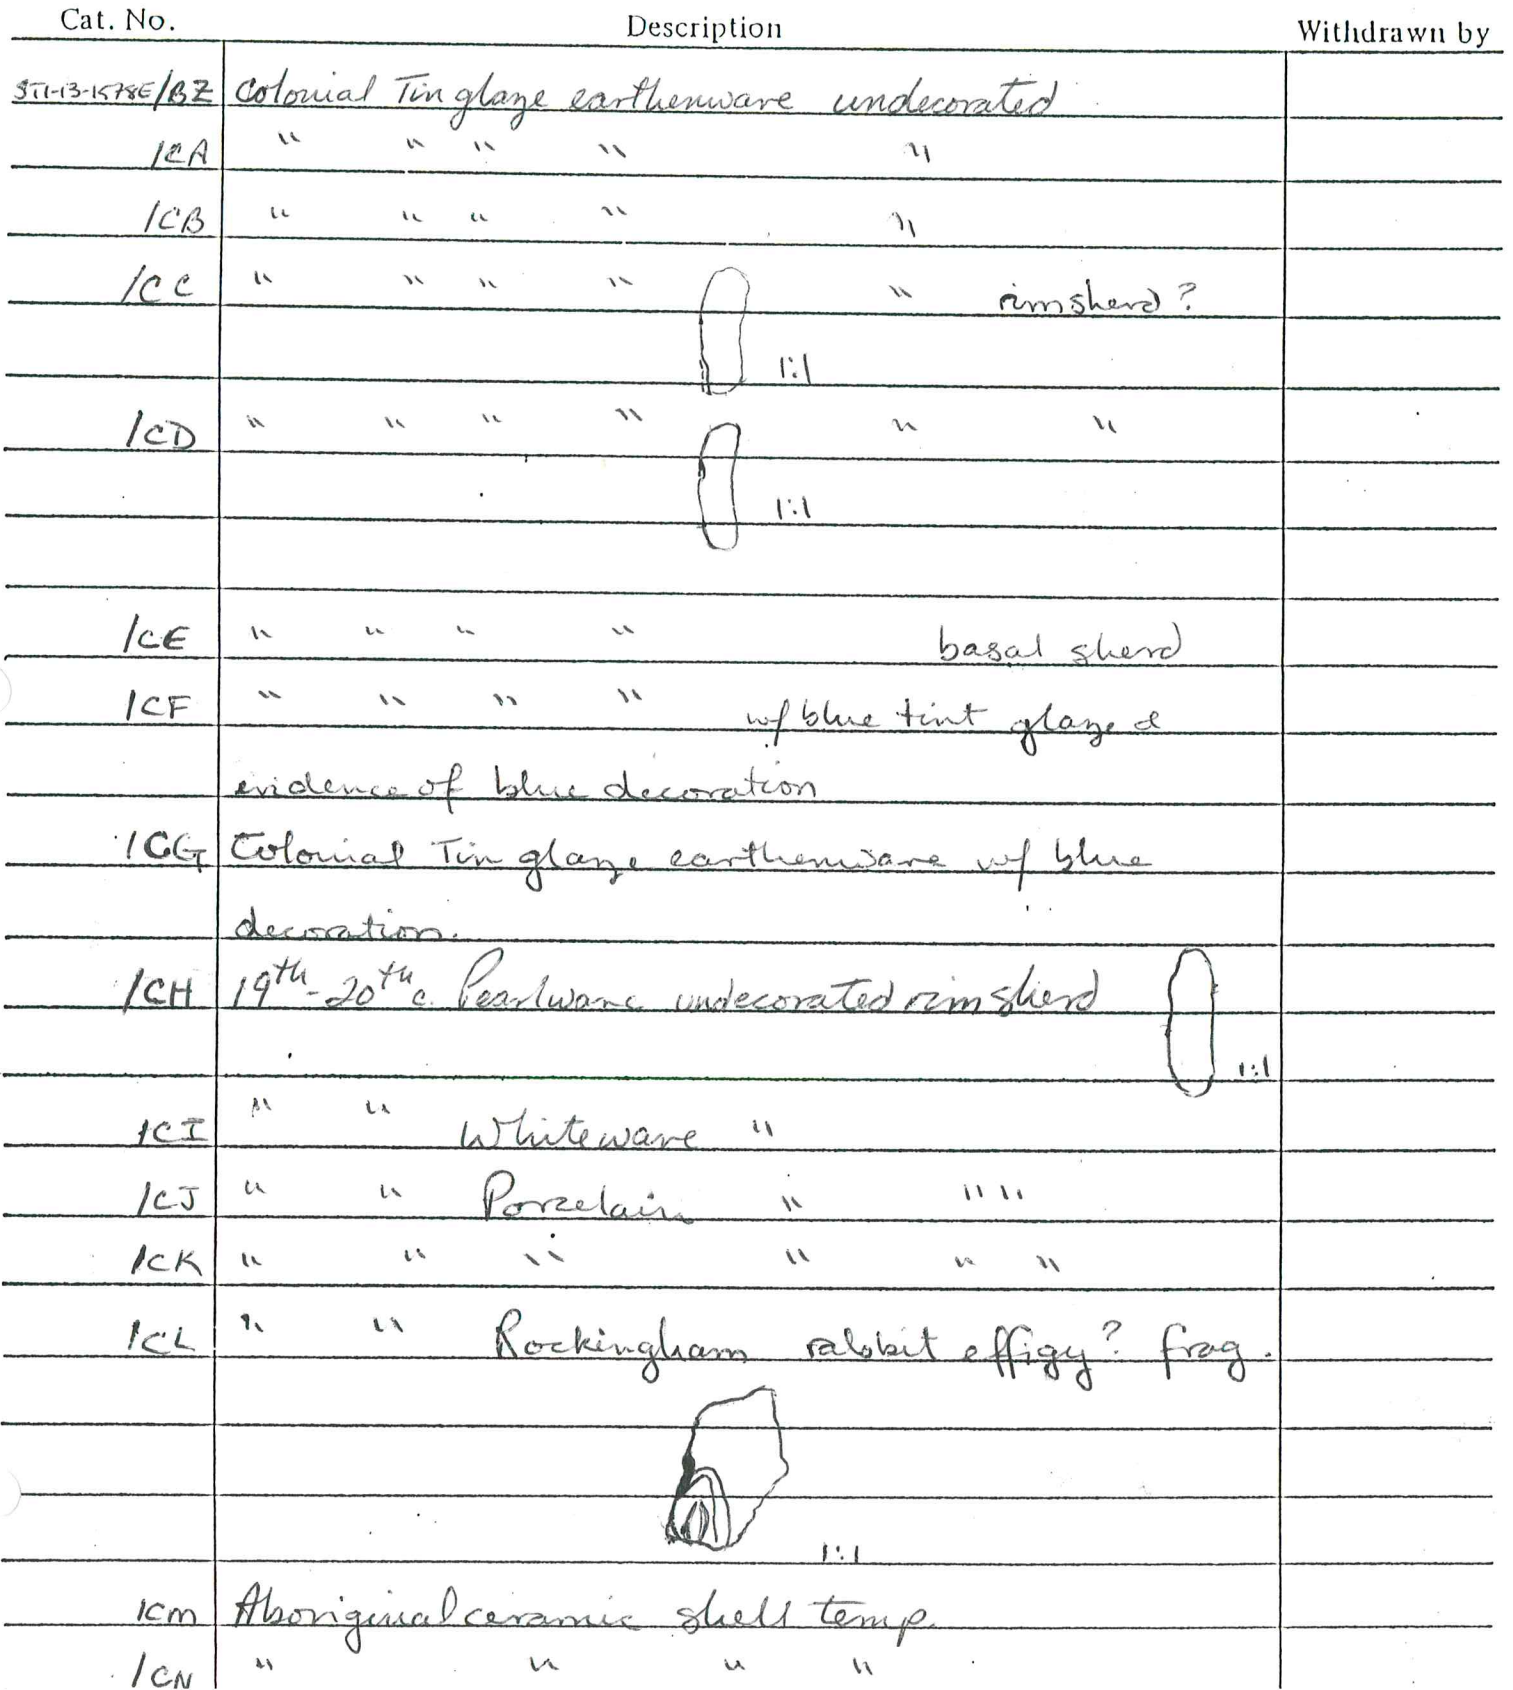 Cat. No. Description Withdrawn by
ST1-13-1578E/BZ Colonial Tin glaze earthenware undecorated
/CA " " " " "
/CB " " " " "
/CC " " " " " rimsherd?
1:1
/CD " " " " " "
1:1
/CE " " " " basal sherd
/CF " " " " w/ blue tint glaze &
evidence of blue decoration
/CG Colonial Tin glaze earthenware w/ blue
decoration.
/CH 19th-20th c. Pearlware undecorated rimsherd
1:1
/CI " " Whiteware "
/CJ " " Porzelain " " "
/CK " " " " " "
/CL " " Rockingham rabbit effigy? frag.
1:1
/CM Aboriginal ceramic shell temp.
/CN " " " "